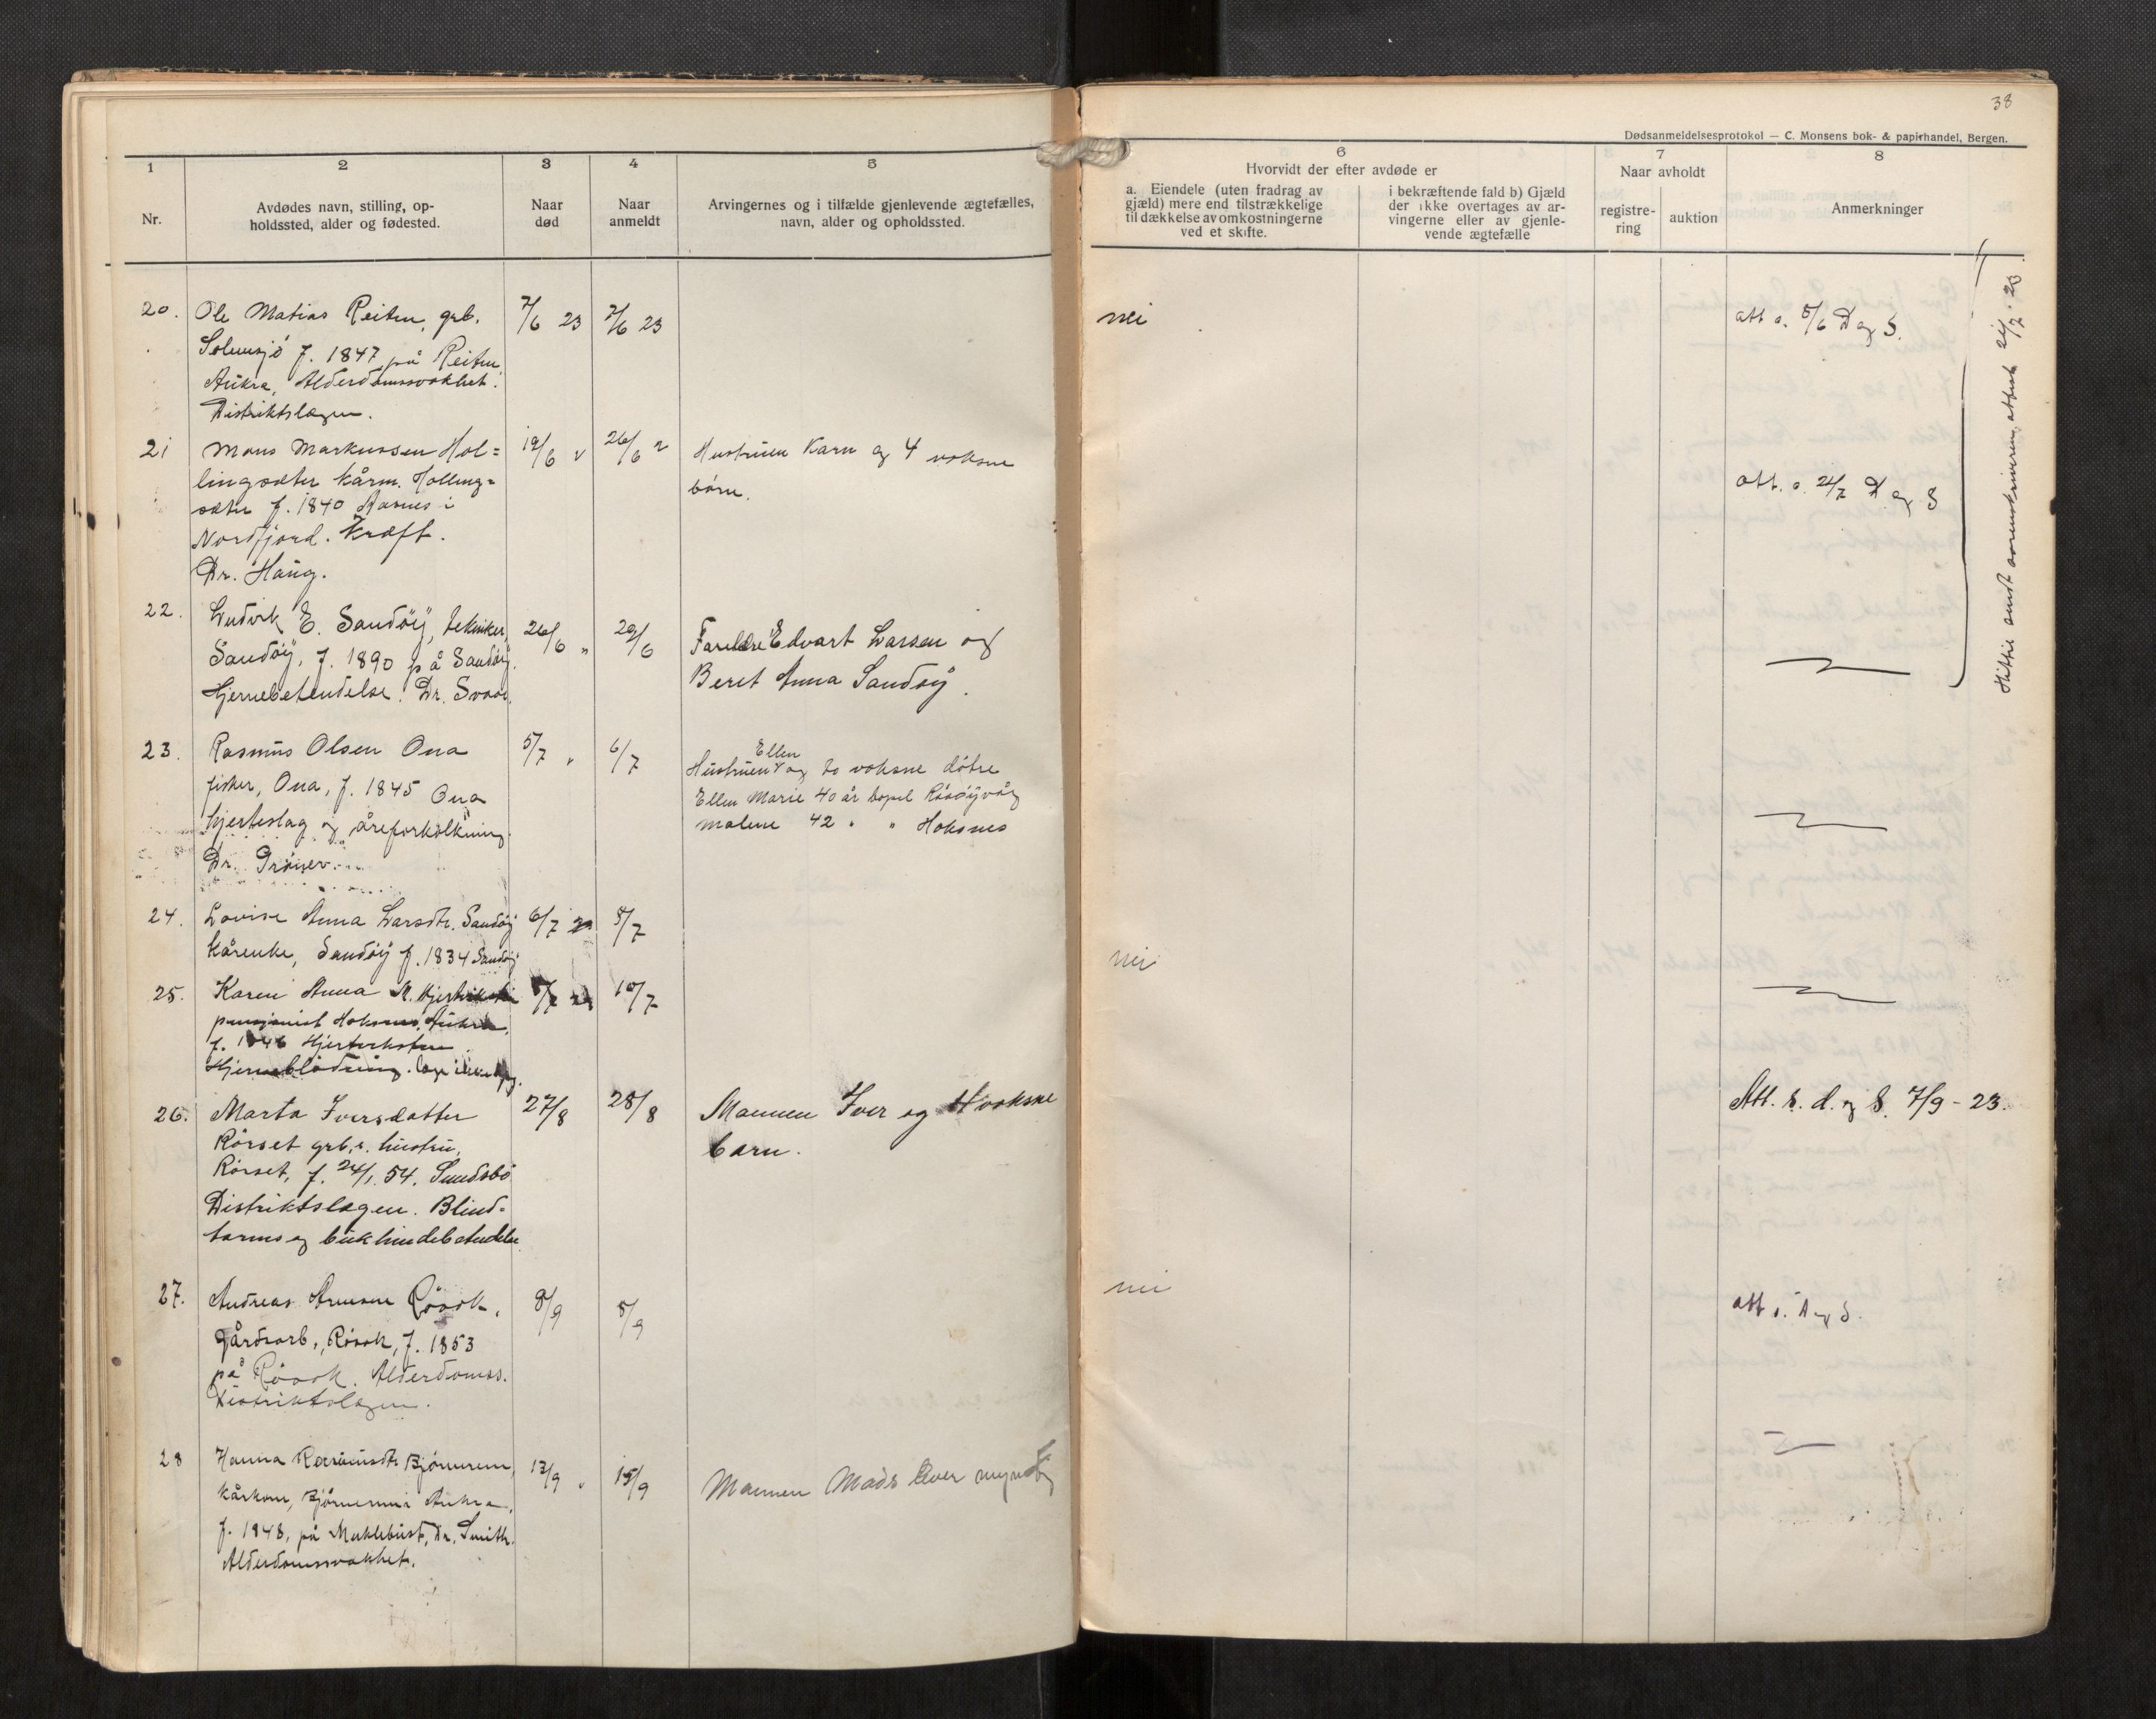 38
Dødsanmeldelsesprotokol — C. Monsens bok- & papirhandel, Bergen.
1
2
3
4
5
6
7
8
Nr.
Avdødes navn, stilling, op-
holdssted, alder og fødested.
Naar
død
Naar
anmeldt
Arvingernes og i tilfælde gjenlevende ægtefælles,
navn, alder og opholdssted.
Hvorvidt der efter avdøde er
a. Eiendele (uten fradrag av
gjæld) mere end tilstrækkelige
til dækkelse av omkostningerne
ved et skifte.
i bekræftende fald b) Gjæld
der ikke overtages av ar-
vingerne eller av gjenle-
vende ægtefælle
Naar avholdt
registre-
ring
auktion
Anmerkninger
20. Ole Matias Reiten, grb. 7/6 23 7/6 23 nei att s. 8/6 D og S.
Solemsjö f. 1847 på Reiten,
Aukra, Alderdomssvakhet.
Distriktslægen.
21 Mons Markussen Hol= 19/6 " 26/6 " Hustruen Karn og 4 voksne
lingsæter kårm. Holling= børn. att. s. 24/7 D og S
sæter f. 1840 i
Nordfjord. Kræft.
Dr. Haug.
22. Ludvik E. Sandöy, tekniker, 26/6 " 29/6 Forældre Edvart Larsen og
Sandöy, f. 1890 på Sandöy. Beret Anna Sandöy.
Hjernebetendelse. Dr.
Hittil sendt sorenskriveren attest 24/7 23.
23. Rasmus Olsen Ona 5/7 " 6/7 Hustruen Ellen og to voksne døtre
fisker, Ona, f. 1845 Ona Ellen Marie 40 år bopel
hjerteslag og åreforkalkning. Malene 42 " " Hoksnes
Dr.
24. Lovise Anna Larsdtr. Sandöy 6/7 23 8/7 nei
kårenke, Sandöy f. 1834 Sandöy
25. Karen Anna 10/7
pensjonist Hoksnes, Aukra,
f. 1846
Hjerneblødning.
26. Marta Iversdatter 27/8 28/8 Mannen Iver og 4 voksne Att. s. d. og S. 7/9 - 23.
Rörset grb.s. hustru, barn.
Rörset, f. 24/1 54. Sundsbö
Distriktslægen. Blind=
tarms og bukhindebetendelse
27. Andreas Arnesen Rösok, 8/9 8/9 nei att s. D og S.
gårdarb., Rösok, f. 1853
på Rösok. Alderdomss.
Distriktslægen.
28 Hanna Rasmusdtr Bjørnerem, 13/9 " 15/9 Mannen Mads
kårkone, Bjørnerem i Aukra,
f. 1848, på Myklebust, Dr. Smith.
Alderdomssvakhet.